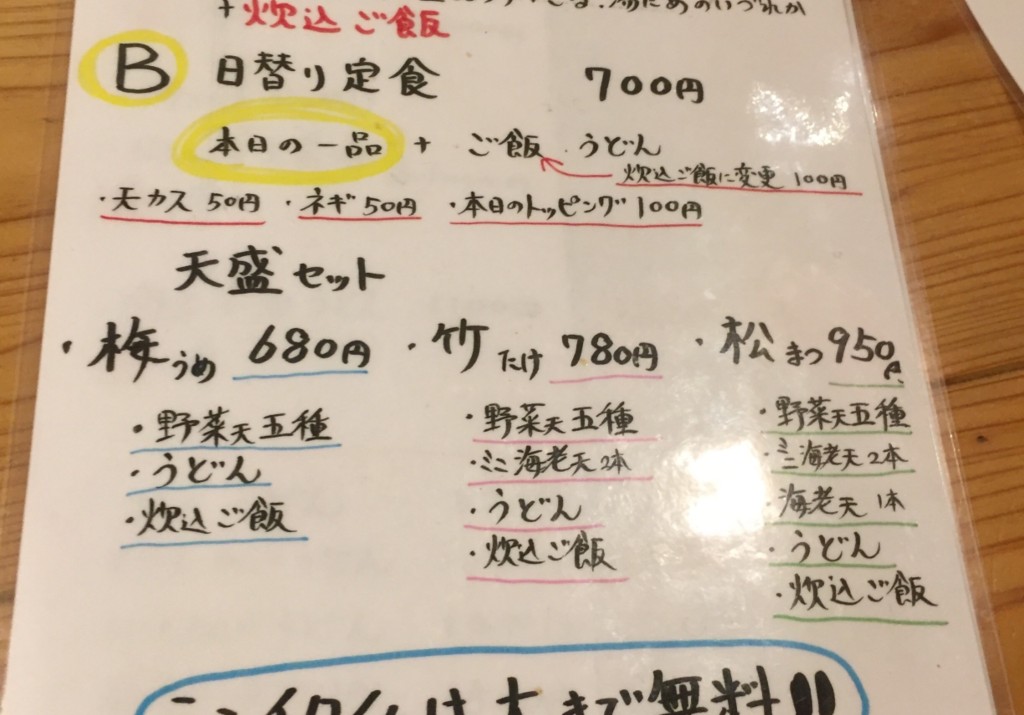 +炊込ご飯
B 日替り定食 700円
本日の一品 + ご飯 . うどん
炊込ご飯に変更 100円
・天カス 50円 ・ネギ 50円 ・本日のトッピング 100円
天盛セット
・梅うめ 680円 ・竹たけ 780円 ・松まつ 950円
・野菜天五種 ・野菜天五種 ・野菜天五種
・うどん ・ミニ海老天2本 ・ミニ海老天2本
・炊込ご飯 ・うどん ・海老天1本
・炊込ご飯 ・うどん
・炊込ご飯
は大まで無料!!